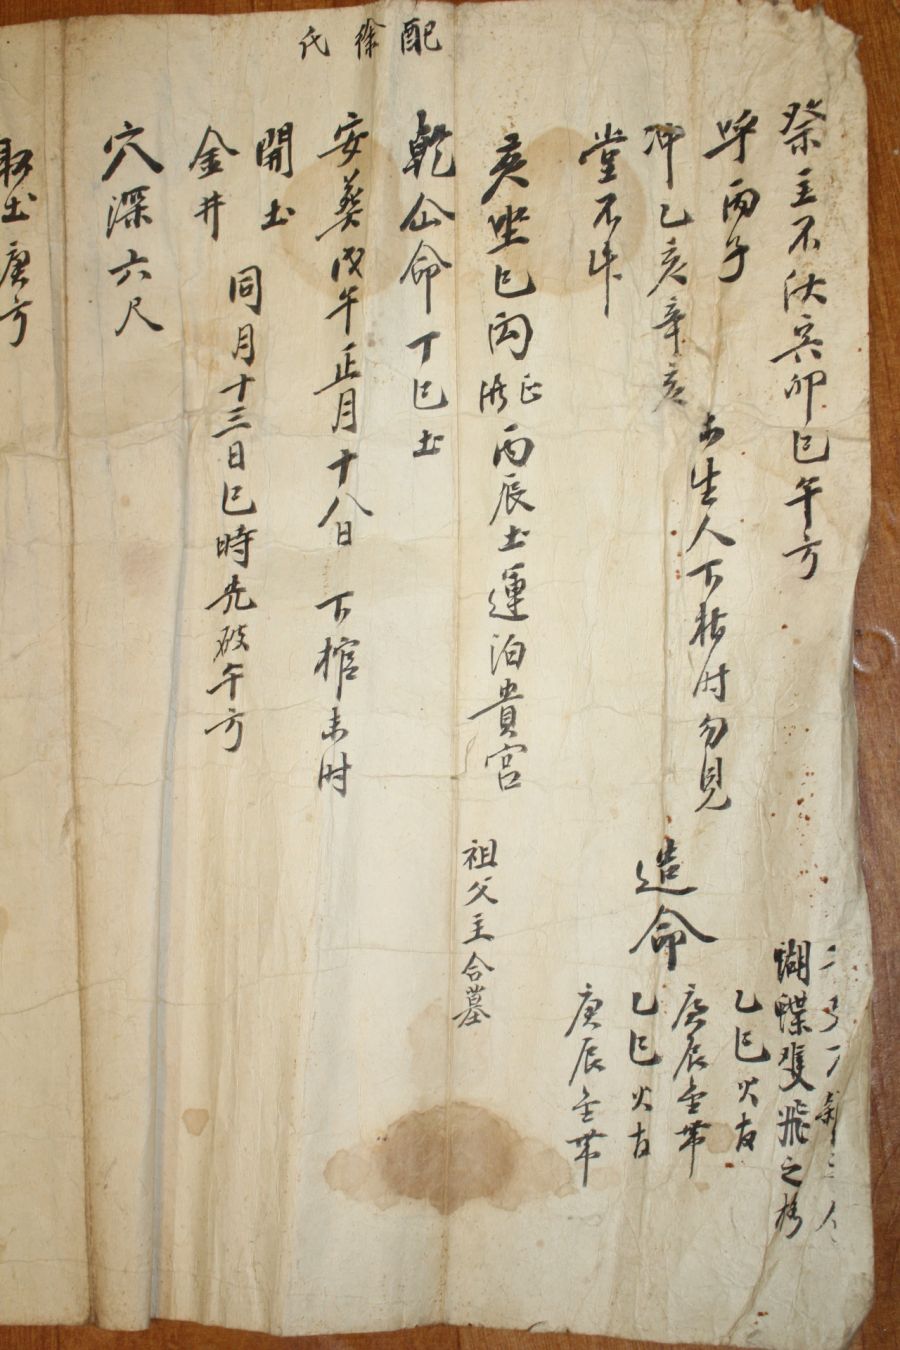 配徐氏
祭主不伏寅卯巳午方
呼丙子
冲乙亥辛亥
生人下 时勿見
堂不
亥坐巳丙
丙辰土運泊貴宮
祖父主合墓
乾仙命丁巳土
安葬戊午正月十八日 下棺未时
開土
金井
同月十三日巳時先破午方
穴深六尺
土庚方
造命
蝴蝶雙飛之格
乙巳火
庚辰金
乙巳火
庚辰金